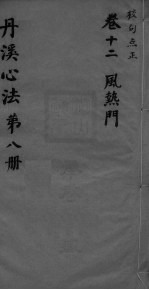 校句点正
卷十二 風熱門
丹溪心法 第八册